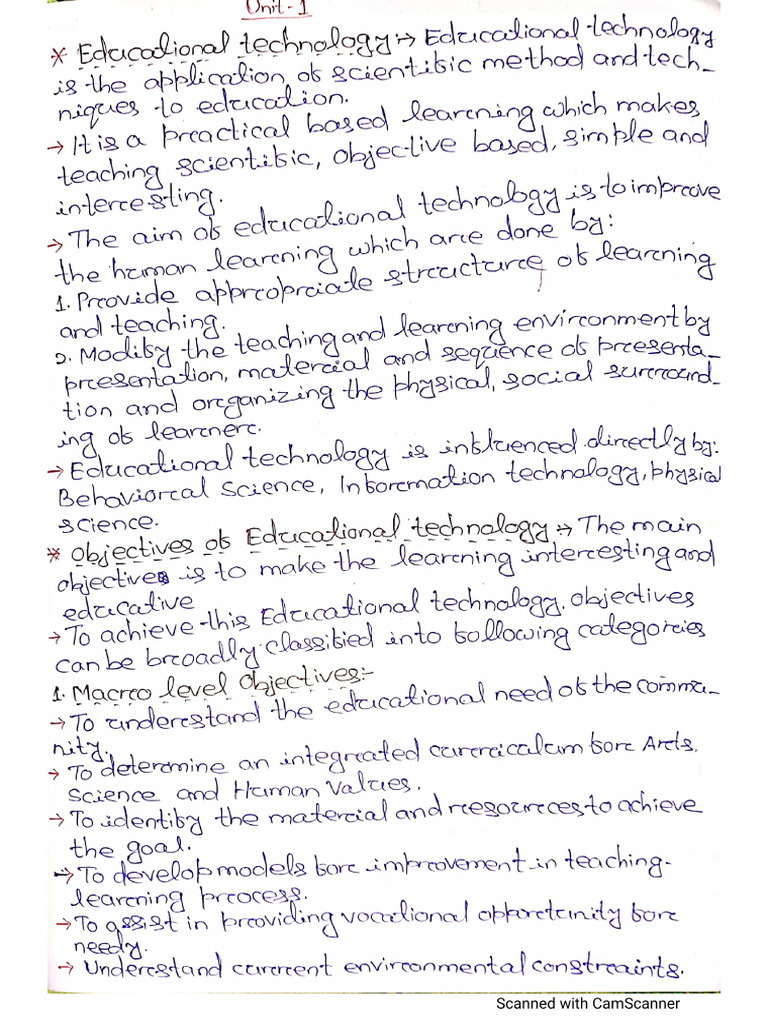 Unit-1
* Educational technology :→ Educational technology
is the application of scientific method and tech-
niques to education.
→ It is a practical based learning which makes
teaching scientific, objective based, simple and
interesting.
→ The aim of educational technology is to improve
the human learning which are done by:
1. Provide appropriate structure of learning
and teaching.
2. Modify the teaching and learning environment by
presentation, material and sequence of presenta-
tion and organizing the physical, social surround-
ing of learner.
→ Educational technology is influenced directly by:
Behavioral Science, Information technology, physical
science.
* Objectives of Educational technology :→ The main
objective is to make the learning interesting and
educative
→ To achieve this Educational technology objectives
can be broadly classified into following categories
1. Macro level Objectives:-
→ To understand the educational need of the commu-
nity.
→ To determine an integrated curriculum for Arts.
Science and Human Values.
→ To identify the material and resources to achieve
the goal.
→ To develop models for improvement in teaching-
learning process.
→ To assist in providing vocational opportunity for
needy.
→ Understand current environmental constraints.
Scanned with CamScanner